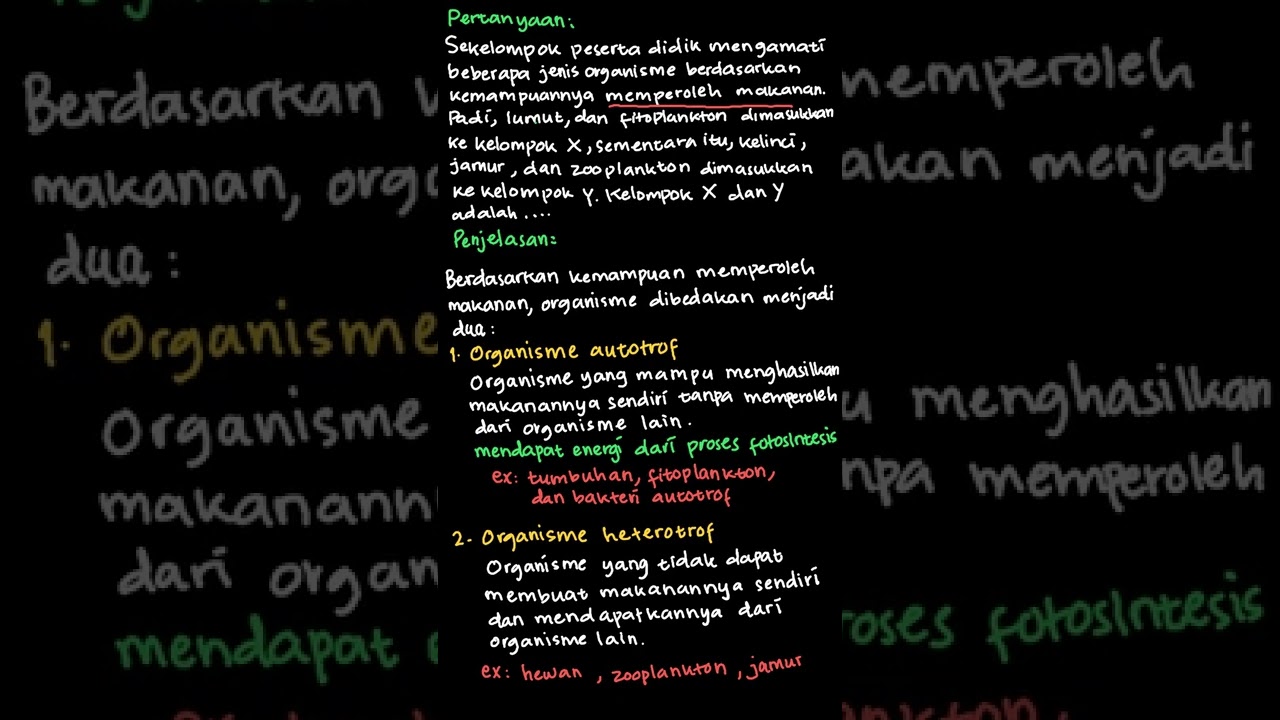 Pertanyaan:
Sekelompok peserta didik mengamati
beberapa jenis organisme berdasarkan
kemampuannya memperoleh makanan.
Padi, lumut, dan fitoplankton dimasukkan
ke kelompok X, sementara itu, kelinci,
jamur, dan zooplankton dimasukkan
ke kelompok Y. Kelompok X dan Y
adalah....
Penjelasan:
Berdasarkan kemampuan memperoleh
makanan, organisme dibedakan menjadi
dua:
1. Organisme autotrof
Organisme yang mampu menghasilkan
makanannya sendiri tanpa memperoleh
dari organisme lain.
mendapat energi dari proses fotosintesis
ex: tumbuhan, fitoplankton,
dan bakteri autotrof
2. Organisme heterotrof
Organisme yang tidak dapat
membuat makanannya sendiri
dan mendapatkannya dari
organisme lain.
ex: hewan, zooplankton, jamur